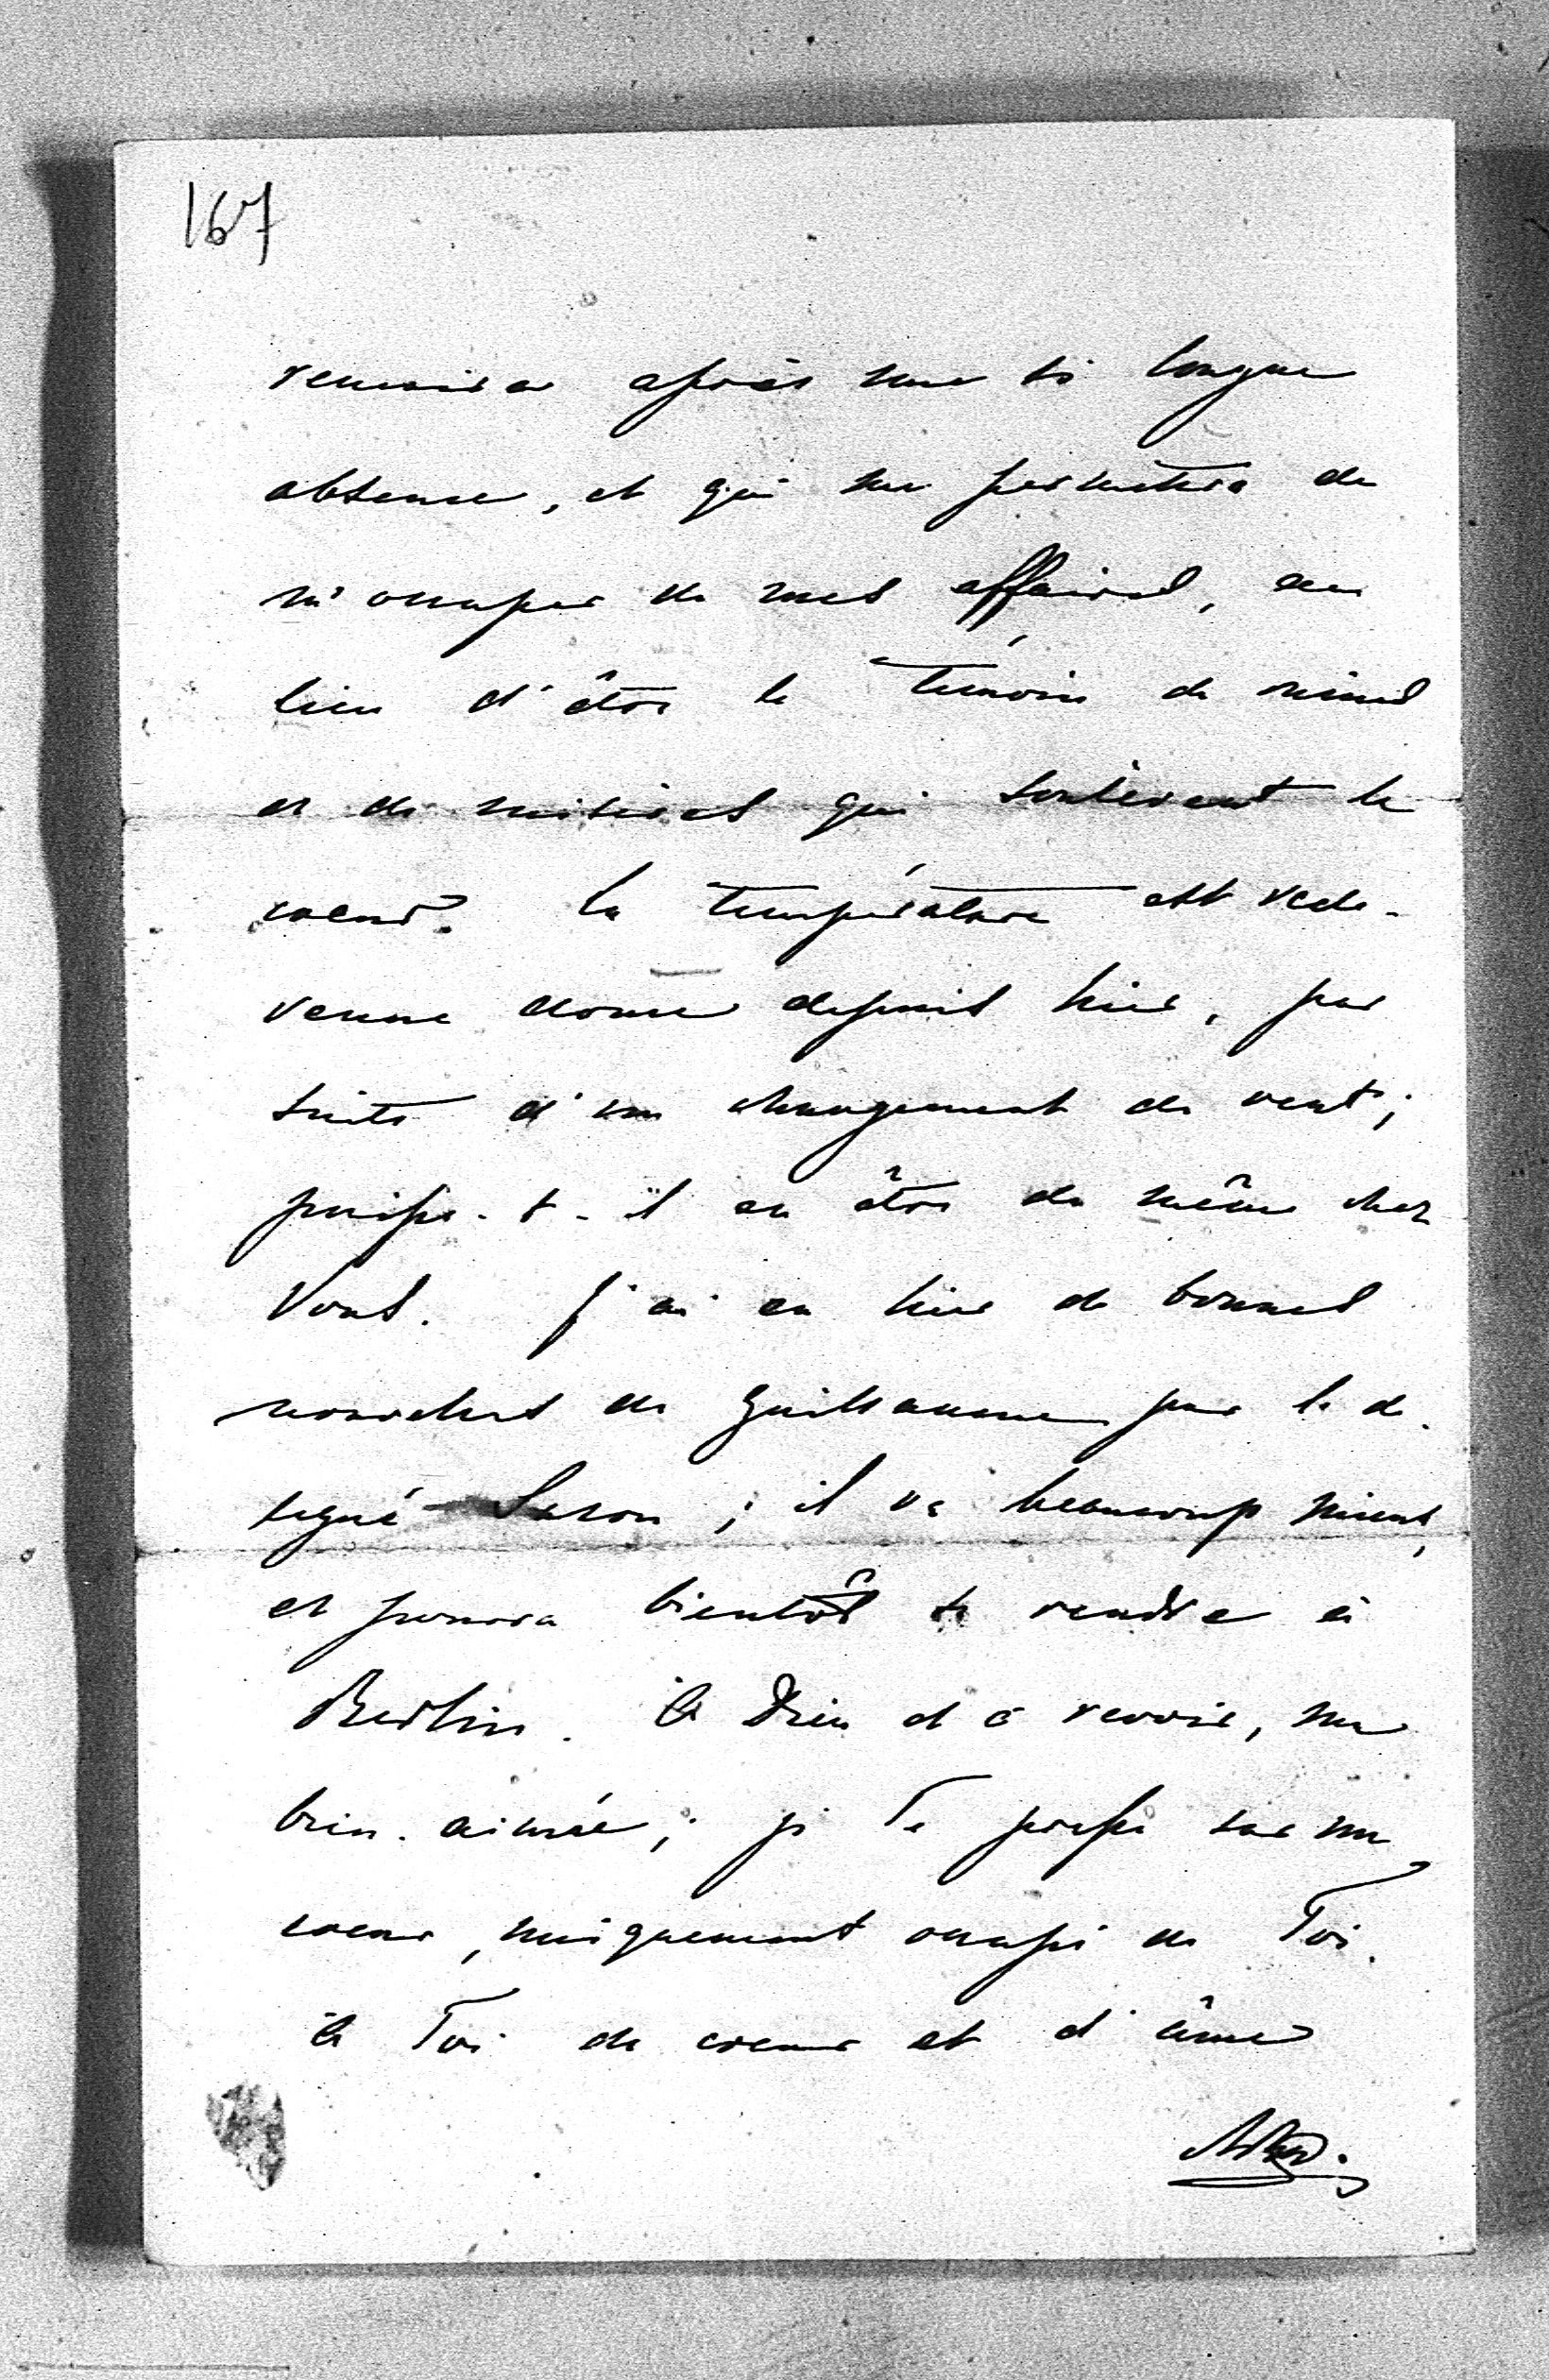 167
réunira après une si longue
absence, et qui me permettra de
m'occuper de mes affaires, au
lieu d'être le témoin de
et de misères qui soulèvent le
coeur. La température est rede-
venue douce depuis hier, par
suite d'un changement de vent;
puisse-t-il en être de même chez
Vous. J'ai eu hier de bonnes
nouvelles de Guillaume par le dé-
légué ; il va beaucoup mieux,
et pourra bientôt se rendre à
Berlin. A Dieu et à revoir, ma
bien-aimée; je Te presse sur mon
coeur, uniquement occupé de Toi.
à Toi de coeur et d'âme